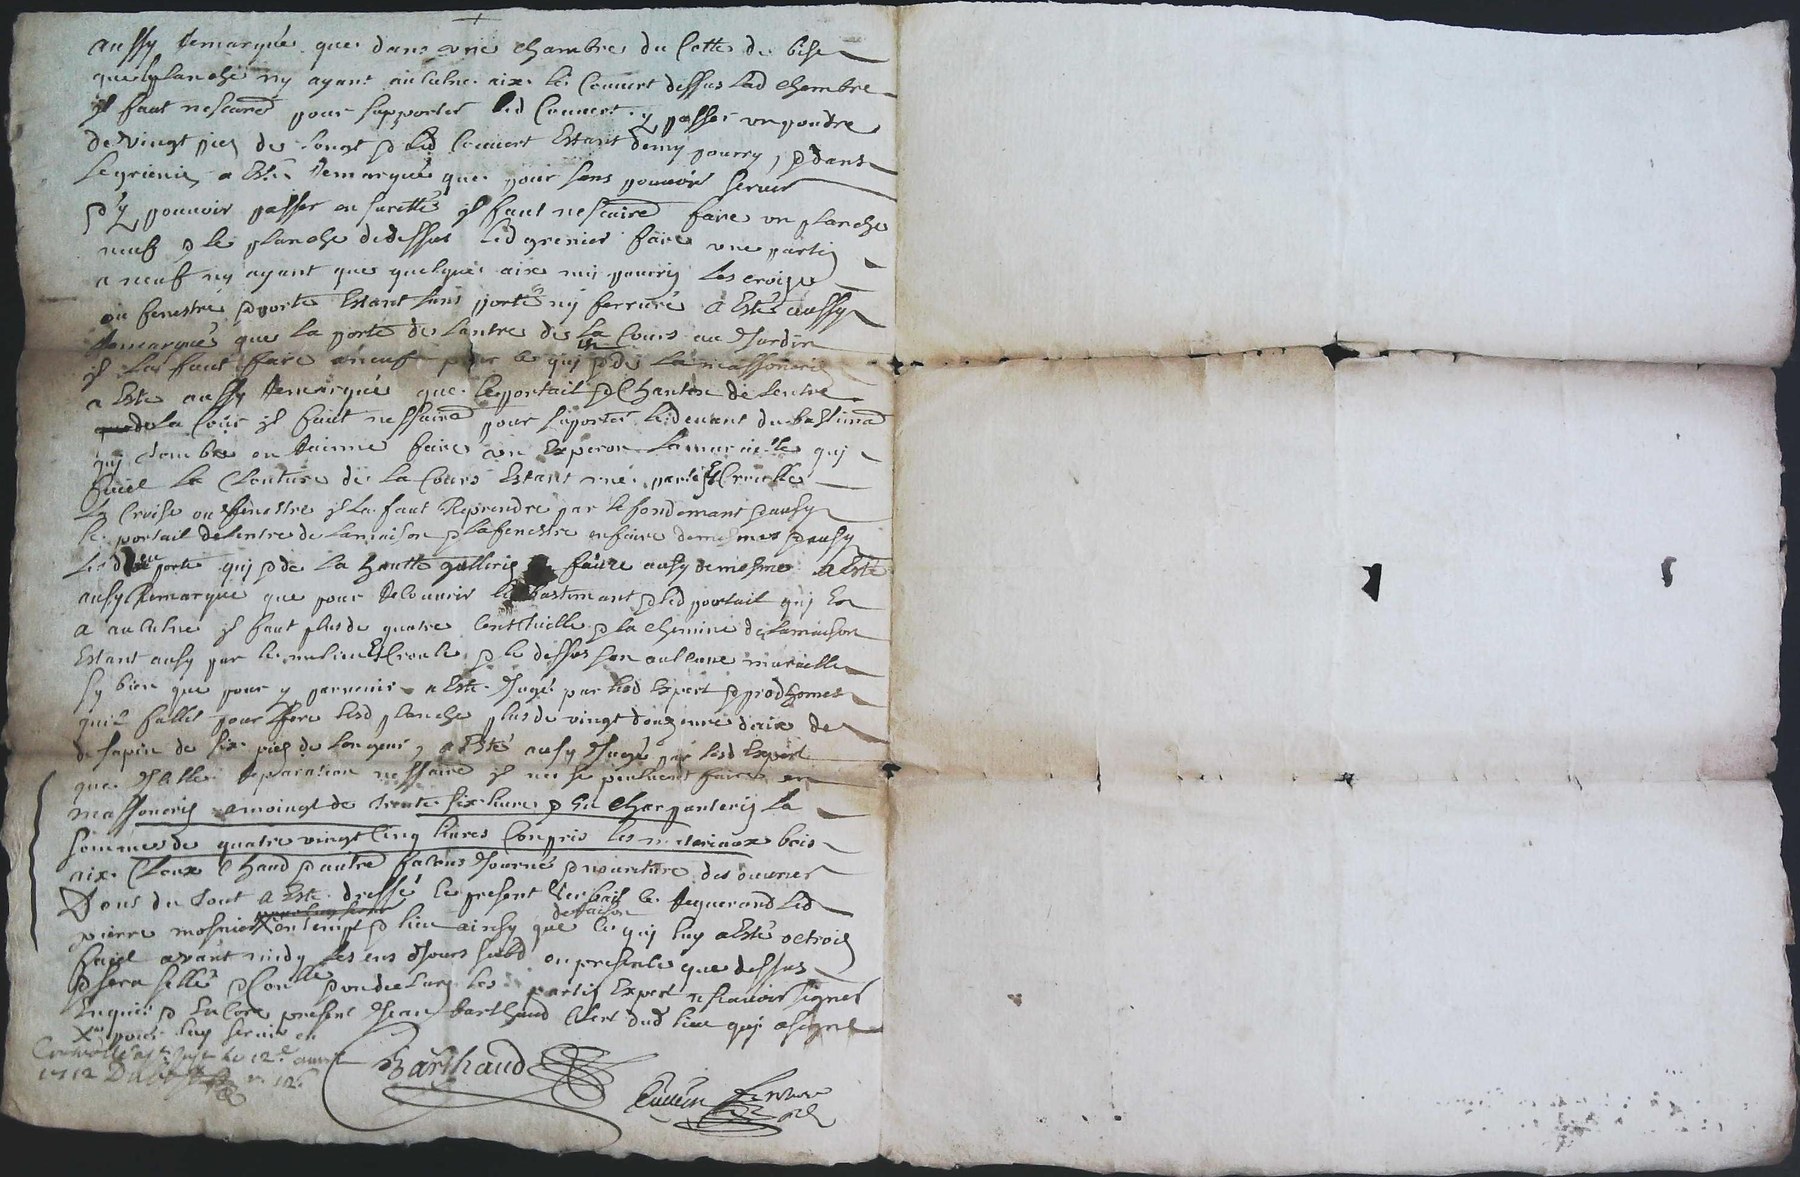 aussy remarqué que dans une chambre du Cotte de bise
que planche ny ayant aulcune aix le Couuert dessus lad chambre
il faut nescaire pour supporter led Couuert y passer un poudre
de vingt pies de longt & led Couuert Estant demy pourry, & dans
le grienie a Esté remarqué que pour sens pouuoir seruir
& y pouuoir passer en suretté il faut nescaire faire un planche
neuf & le planche dedessus led grenier faire une partie
a neuf ny ayant que quelque aix my pourry les croize
ou fenestre & porte Estant sans porte ny ferrure a Esté aussy
remarqué que la porte de lantre de la Cours au Jardin
il las faut faire aneuf pour ce qui & de la massonerie
a Esté aussy remarqué que le portail & Chanton de lentre
de la Cour il faut nessaire pour suporter le deuant du bastimant
qui tombe en ruinne faire un Experon la muraille qui
faict la Clouture de la Cours Estant une partie Ecroullé
la Croise ou fenestre il la faut Reprendre par le fondemant & aussy
le portail de lentre de la maison & la fenestre en faire de mesmes & aussy
les deux porte qui & de la hautte gallerie faire ausy de mesme a Esté
ausy Remarque que pour Recouurir led bastimant & led portail qui En
a aulcune il faut plus de quatre cent thuille & la chemine de la maison
Estant ausy par le milieu Ecroule & le dessus son aultane muraille
sy bien que pour y paruenir a Esté Jugé par lesd Expert & prodhomes
quil fallit pour fere lesd planche plus de vingt douzenne daix de
de sapin de six pies de longeur, a Esté ausy Jugé par lesd Expert
que Jcelle reparation nessaire il ne se peulient faire en
massonerie amoingt de trente six liure & En charpanterie la
somme de quatre vingt Cinq liures Conpris les materiaux bois
aix Cloux Chaud & autre facons Journé & nouriture des ouurier
Dont du tout a Esté dressé le present verbail le requerand led
pierre mosnier X en tempt & lieu de raison ainsy que le qui luy a Esté octroie
faict avant midy les ens Jours susd en presence que dessus
& sera sellé & Conlle & les partie Expert n scauoir signer
Enquis & En Core present Jean barthaud Clert dud lieu qui a signé
X pour luy seruir en
Controllé le 12e
1712
Barthaud